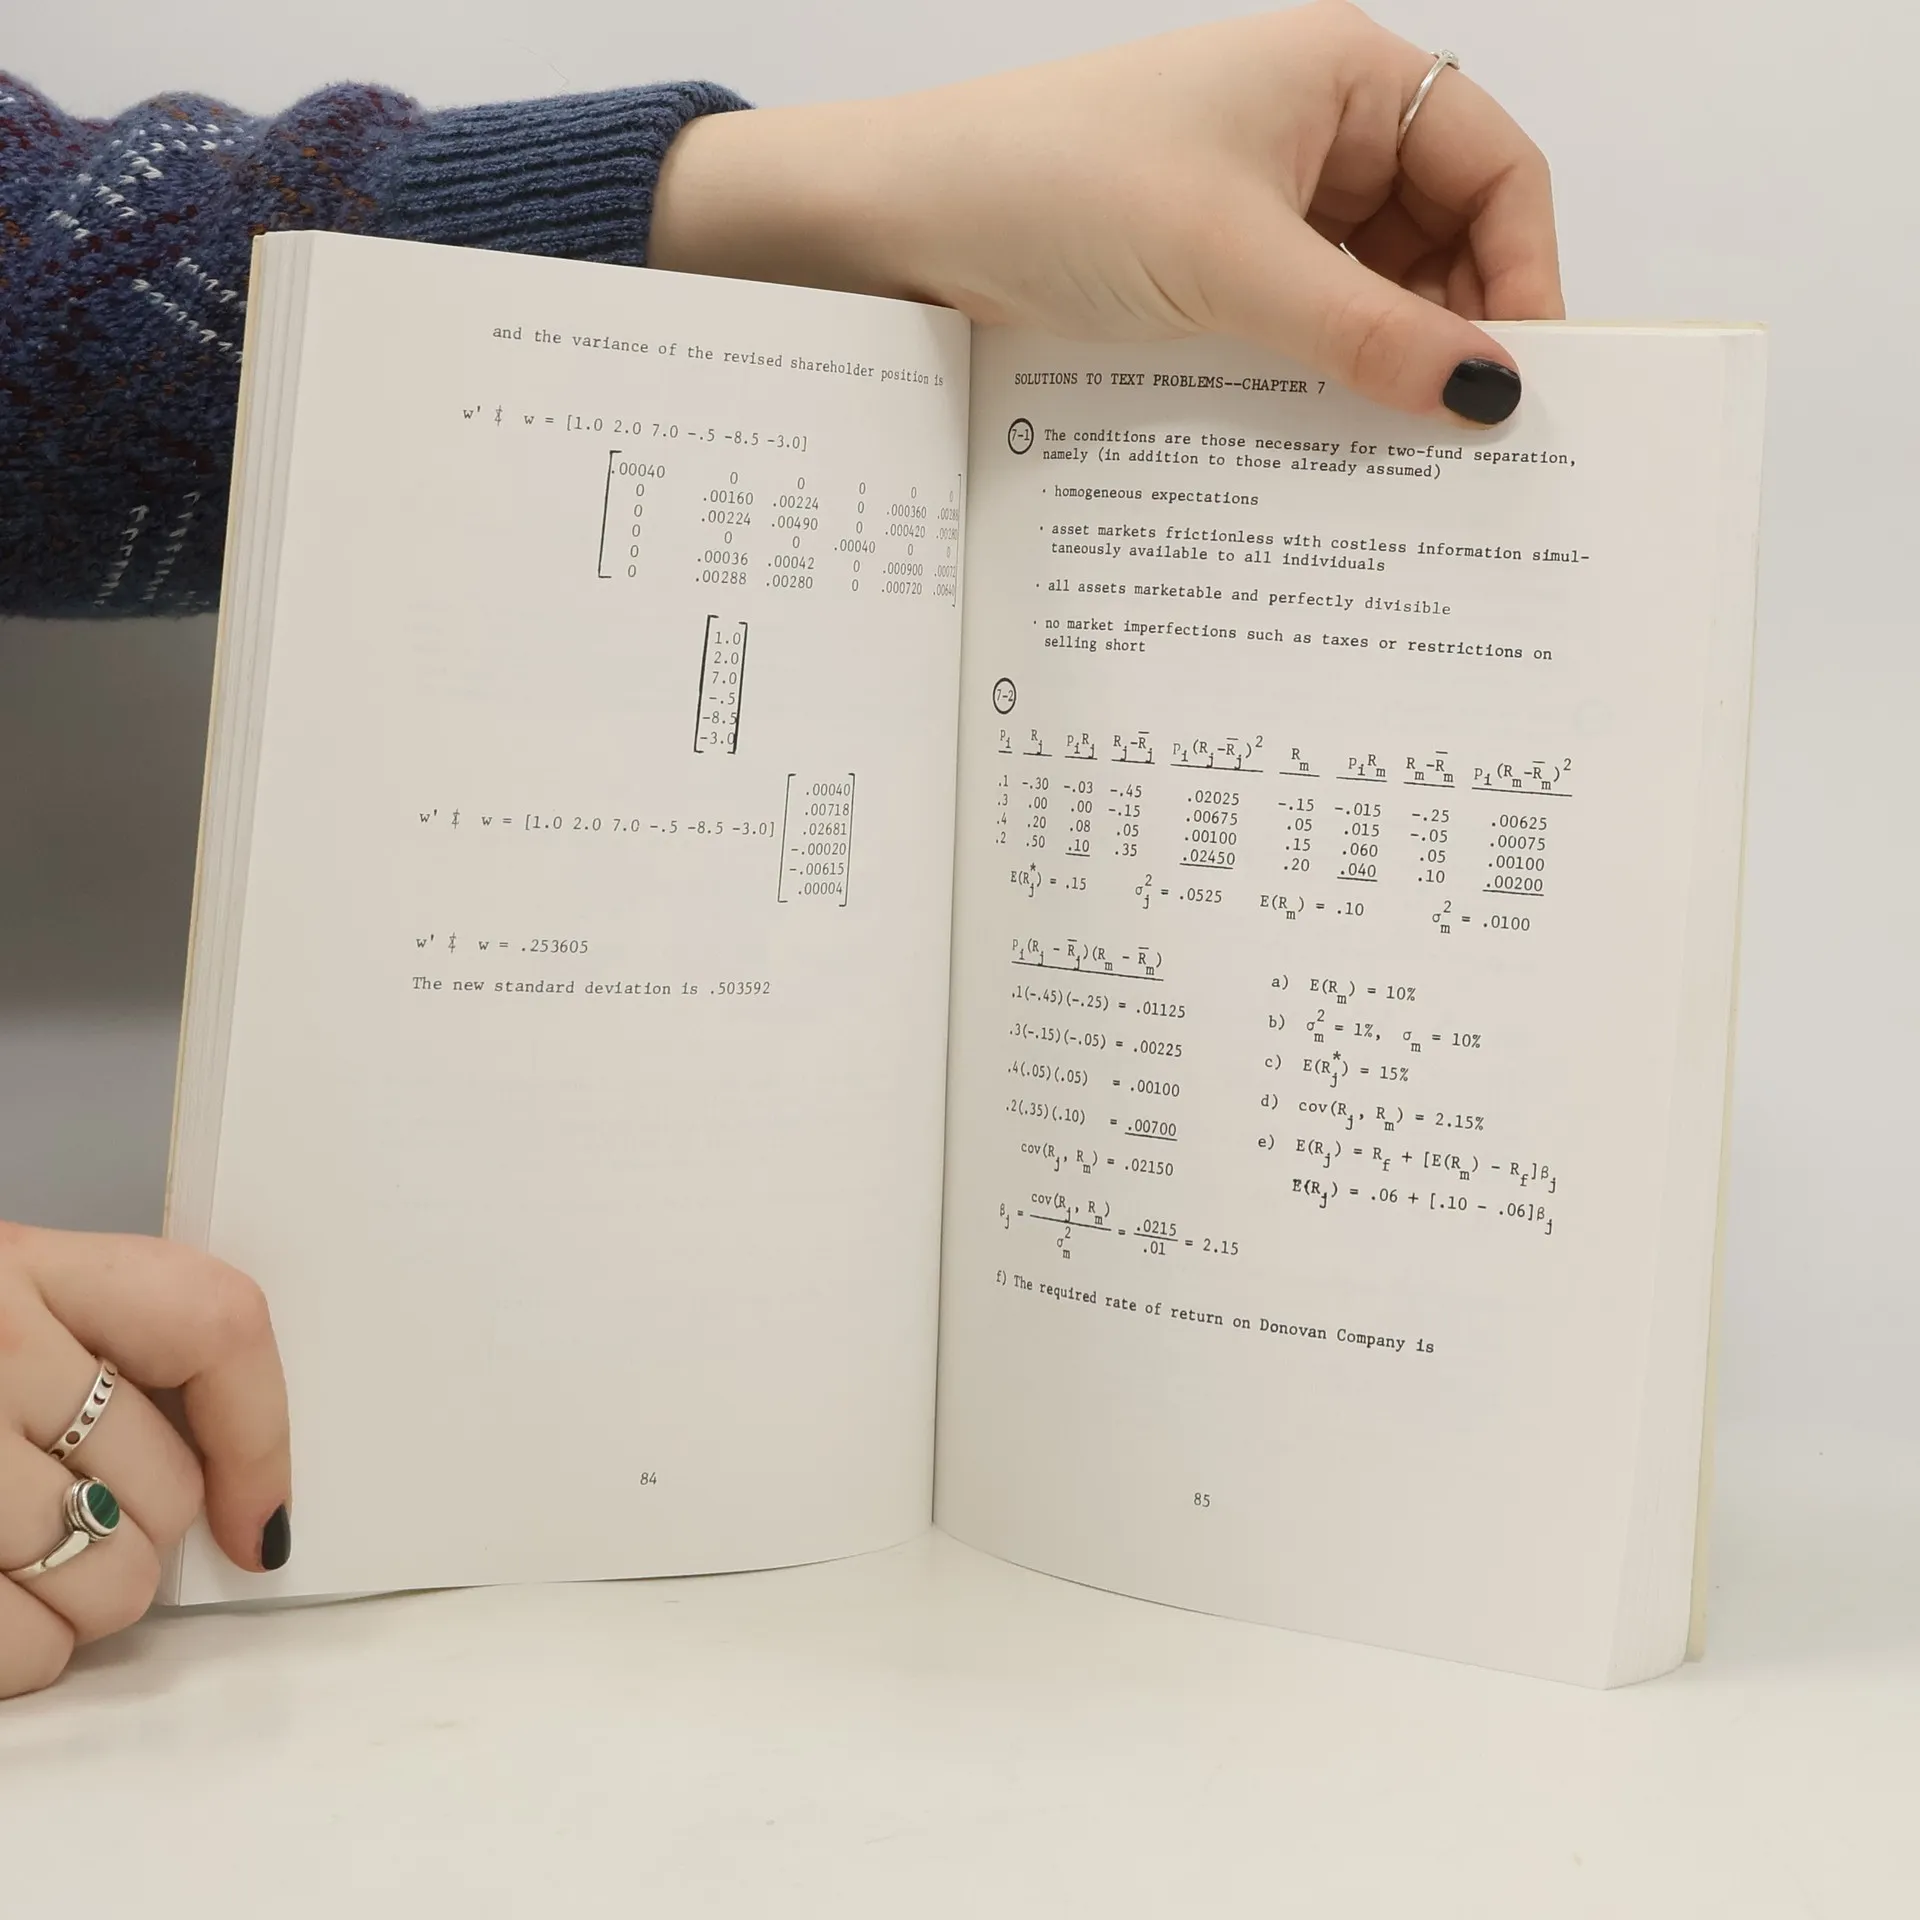 and the variance of the revised shareholder position is
w' Σ w = [1.0 2.0 7.0 -.5 -8.5 -3.0]
.00040 0 0 0 0 0
0 .00160 .00224 0 .000360
0 .00224 .00490 0 .000420 .00280
0 0 0 .00040 0 0
0 .00036 .00042 0 .000900 .00072
0 .00288 .00280 0 .000720 .00640
1.0
2.0
7.0
-.5
-8.5
-3.0
w' Σ w = [1.0 2.0 7.0 -.5 -8.5 -3.0]
.00040
.00718
.02681
-.00020
-.00615
.00004
w' Σ w = .253605
The new standard deviation is .503592
84
SOLUTIONS TO TEXT PROBLEMS--CHAPTER 7
7-1 The conditions are those necessary for two-fund separation,
namely (in addition to those already assumed)
· homogeneous expectations
· asset markets frictionless with costless information simul-
taneously available to all individuals
· all assets marketable and perfectly divisible
· no market imperfections such as taxes or restrictions on
selling short
7-2
Pi Rj PiRj Rj-R̄j Pi(Rj-R̄j)² Rm PiRm Rm-R̄m Pi(Rm-R̄m)²
.1 -.30 -.03 -.45 .02025 -.15 -.015 -.25 .00625
.3 .00 .00 -.15 .00675 .05 .015 -.05 .00075
.4 .20 .08 .05 .00100 .15 .060 .05 .00100
.2 .50 .10 .35 .02450 .20 .040 .10 .00200
E(Rj*) = .15 σj² = .0525 E(Rm) = .10 σm² = .0100
Pi(Rj - R̄j)(Rm - R̄m)
.1(-.45)(-.25) = .01125
.3(-.15)(-.05) = .00225
.4(.05)(.05) = .00100
.2(.35)(.10) = .00700
cov(Rj, Rm) = .02150
βj = cov(Rj, Rm) / σm² = .0215 / .01 = 2.15
a) E(Rm) = 10%
b) σm² = 1%, σm = 10%
c) E(Rj*) = 15%
d) cov(Rj, Rm) = 2.15%
e) E(Rj) = Rf + [E(Rm) - Rf]βj
E(Rj) = .06 + [.10 - .06]βj
f) The required rate of return on Donovan Company is
85